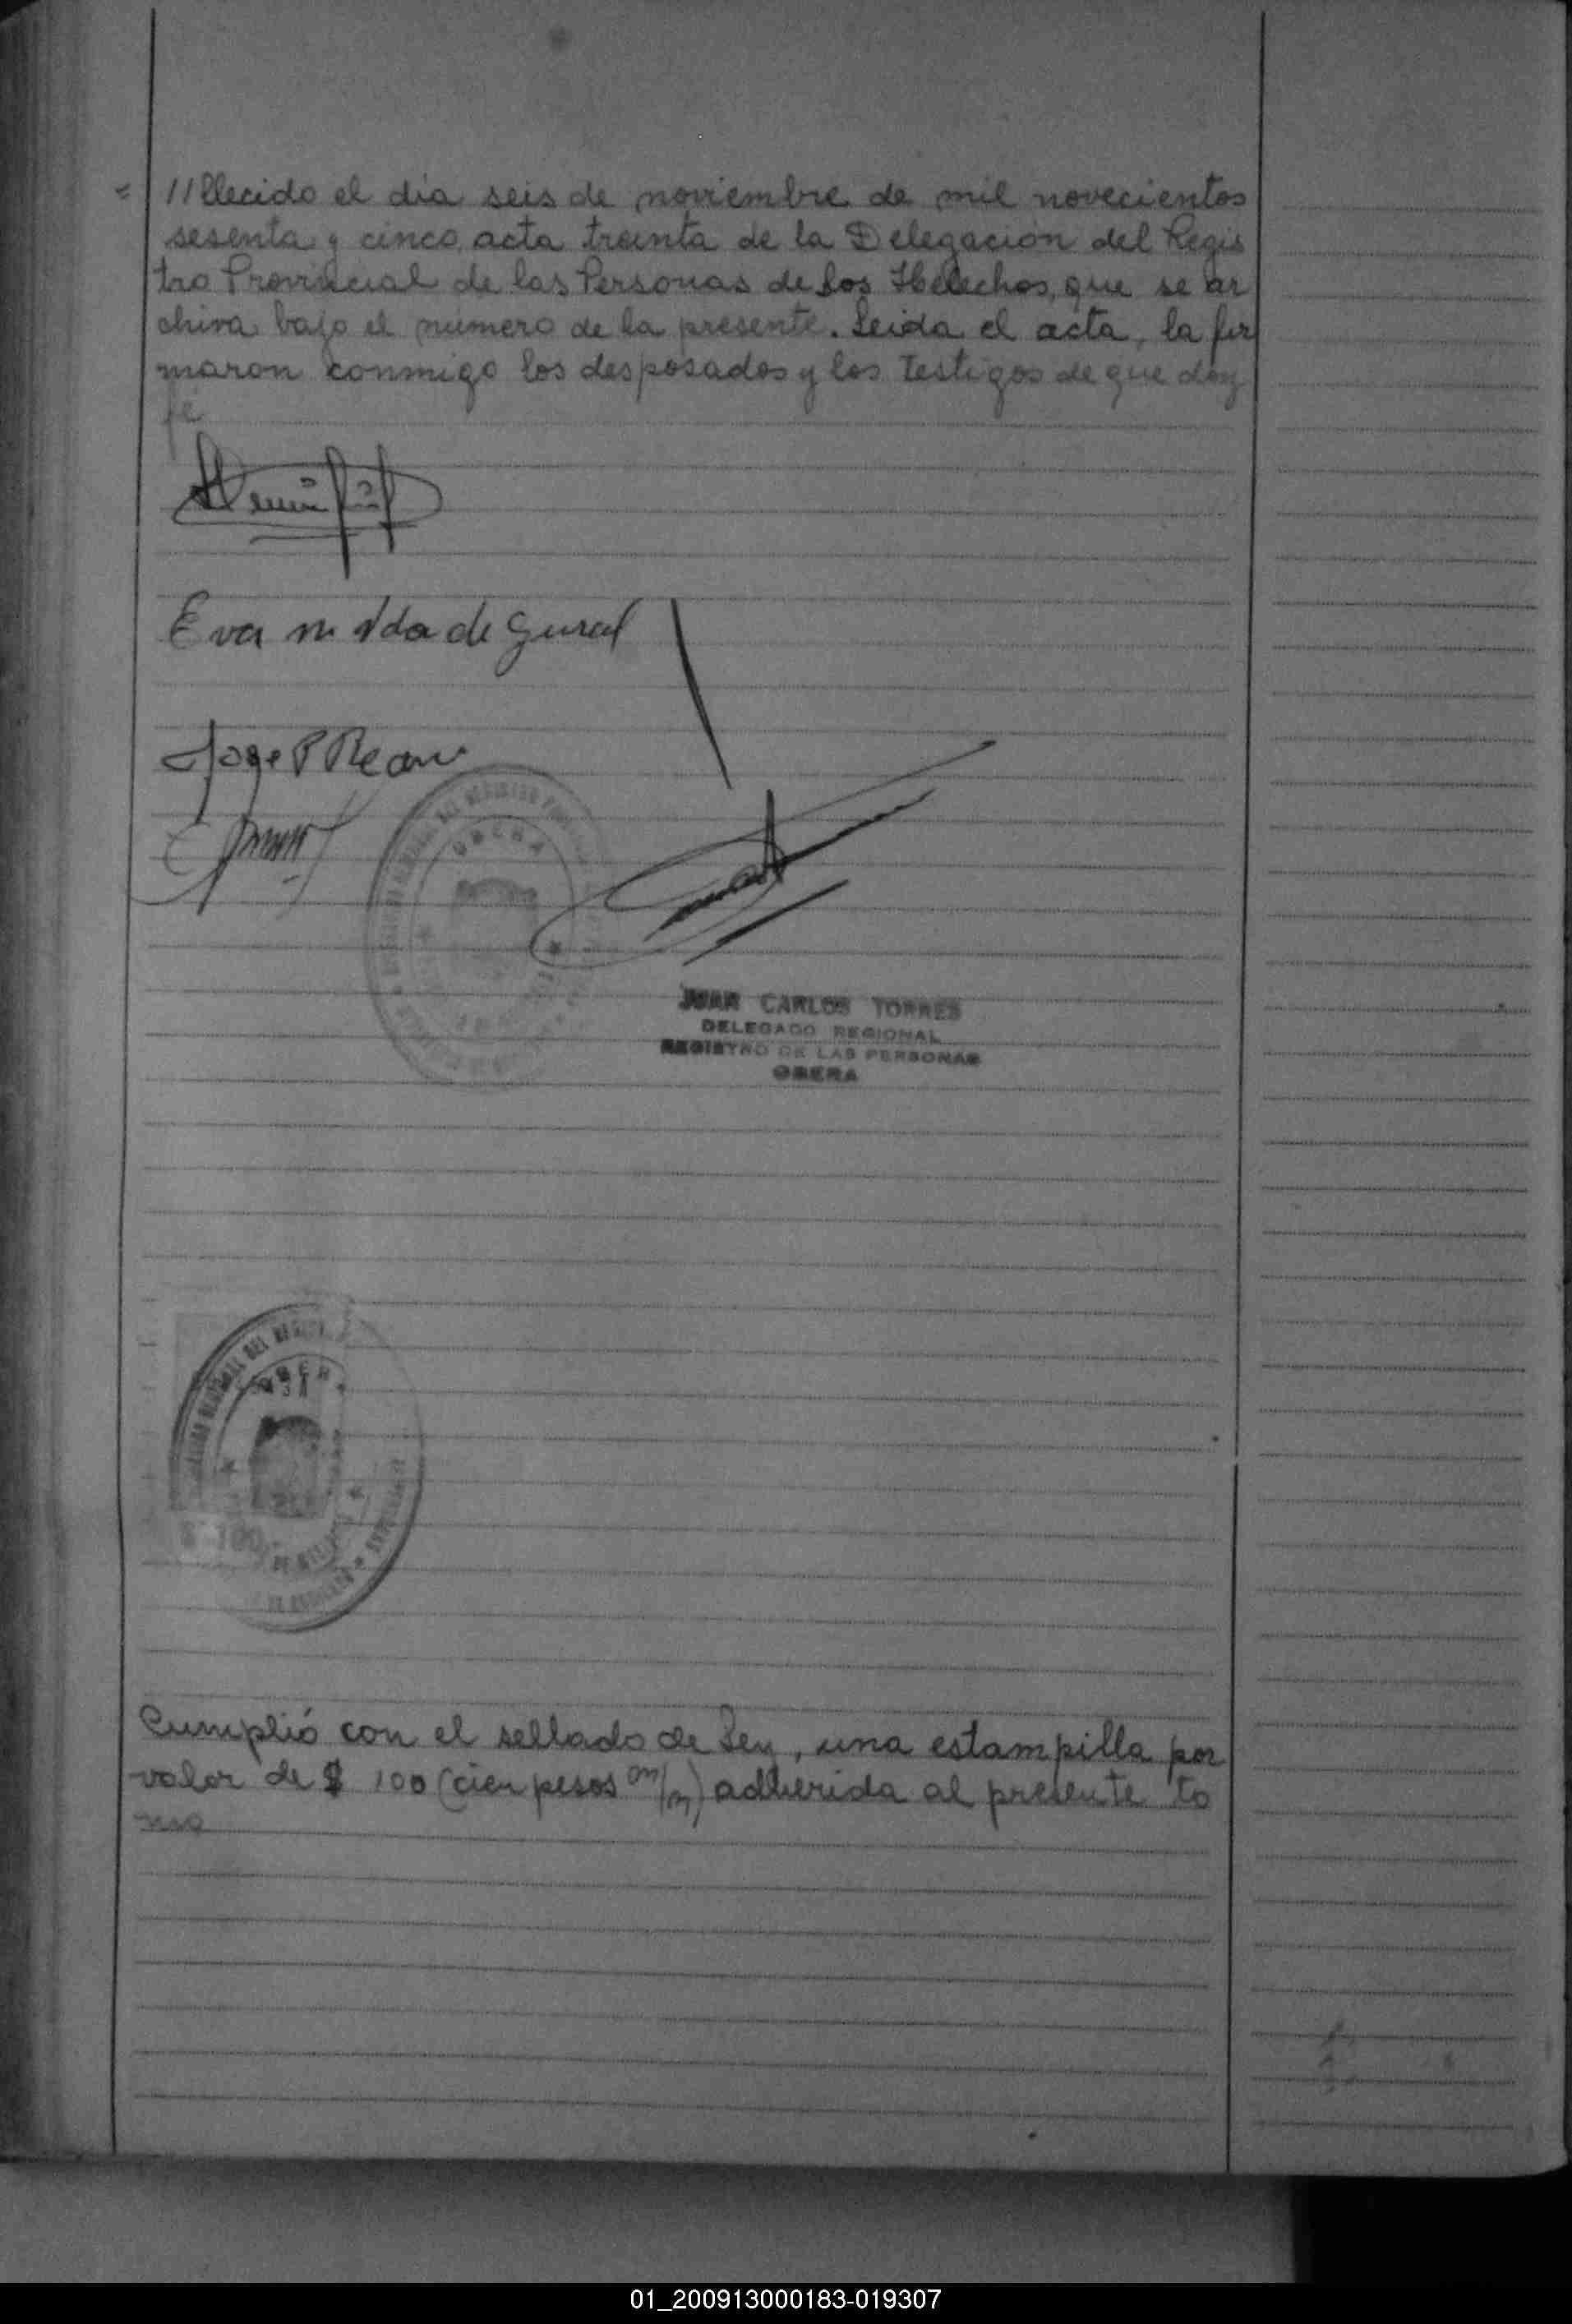 //llecido el día seis de noviembre de mil novecientos
sesenta y cinco, acta treinta de la Delegación del Regis
tro Provincial de las Personas de Los Helechos, que se ar
chiva bajo el número de la presente. Leida el acta, la fir
maron conmigo los desposados y los testigos de que doy
fé
Eva m Vda de Gural
Jose P
OBERA
JUAN CARLOS TORRES
DELEGADO REGIONAL
REGISTRO DE LAS PERSONAS
OBERA
DEL
$ 100
Cumplió con el sellado de Ley, una estampilla por
valor de $ 100 (cien pesos m/n) adherida al presente to
mo
01_200913000183-019307